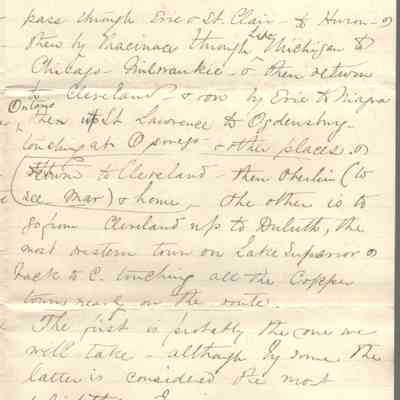 pass through Erie & St. Clair - to Huron - &
then by Macinac through Lake Michigan to
Chicago - Milwaukie - & then return
to Cleveland - & on by Erie to Niagra
Ontario
then St Lawrence to Ogdensburg -
touching at Oswego - & other places. &
return to Cleveland - then Oberlin (to
see Mar) & home, - the other is to
go from Cleveland up to Duluth, the
most western town on Lake Superior &
back to C. touching all the Copper
towns nearly on the route.
The first is probably the one we
will take - although by some the
latter is considered the most